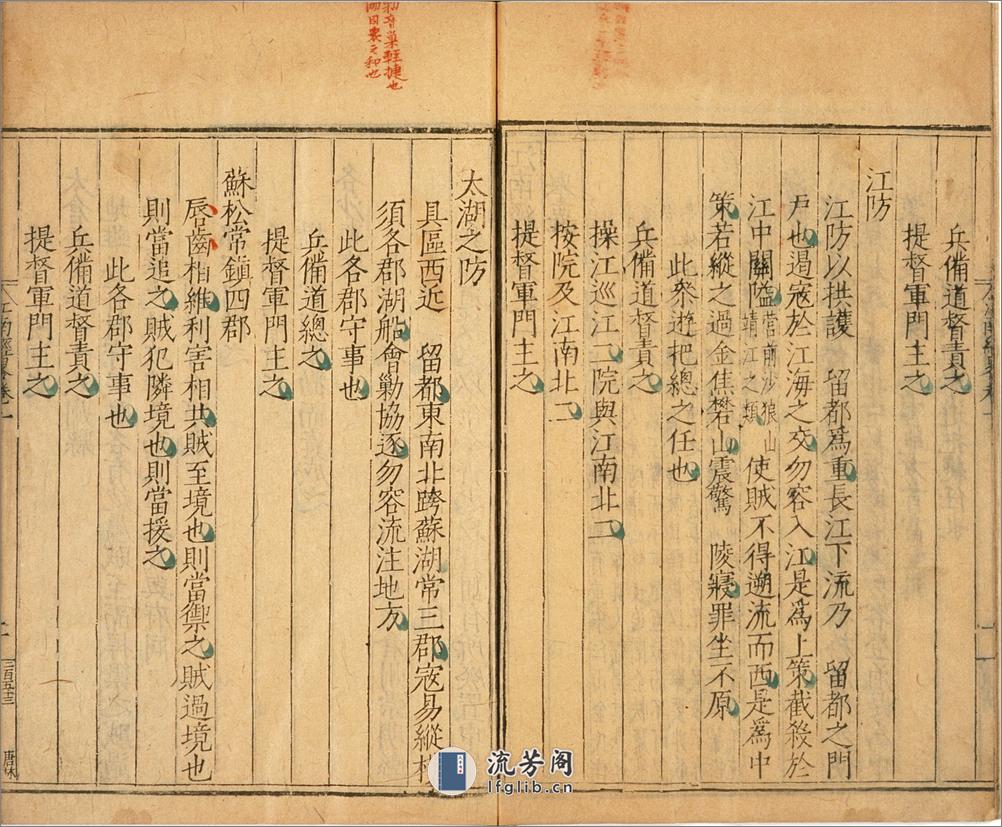 兵備道督責之
提督軍門主之
江防
江防以拱護　留都爲重長江下流乃　留都之門
戸也遏寇於江海之交勿容入江是爲上策截殺於
江中關隘營前沙狼山靖江之類使賊不得遡流而西是爲中
策若縱之過金焦礬山震驚　陵寢罪坐不原
此叅遊把總之任也
兵備道督責之
操江巡江二院與江南北二
按院及江南北二
提督軍門主之
太湖之防
具區西近　留都東南北跨蘇湖常三郡寇易縱橫
須各郡湖船會勦協逐勿容流注地方
此各郡守事也
兵備道總之
提督軍門主之
蘇松常鎮四郡
唇齒相維利害相共賊至境也則當禦之賊過境也
則當追之賊犯隣境也則當援之
此各郡守事也
兵備道督責之
提督軍門主之
勦音巢輕捷也
三百五十三
流芳阁
lfglib.cn